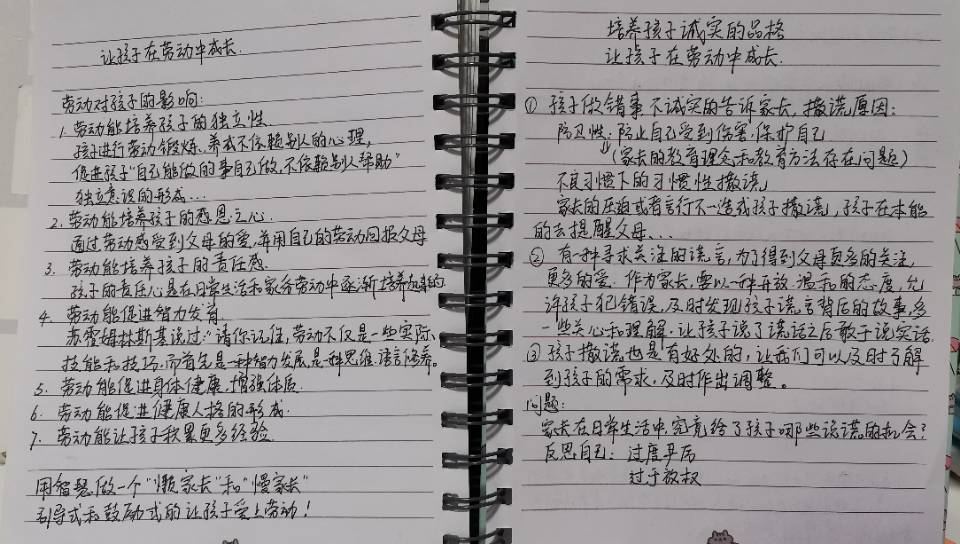 让孩子在劳动中成长.
劳动对孩子的影响:
1. 劳动能培养孩子的独立性.
孩子进行劳动锻炼、养成不依赖别人的心理,
促进孩子“自己能做的事自己做,不依赖别人帮助”
独立意识的形成...
2. 劳动能培养孩子的感恩之心.
通过劳动感受到父母的爱,并用自己的劳动回报父母
3. 劳动能培养孩子的责任感.
孩子的责任心是在日常生活和家务劳动中逐渐培养起来的.
4. 劳动能促进智力发育.
苏霍姆林斯基说过:“请你记住,劳动不仅是一些实际
技能和技巧,而首先是一种智力发展,是一种思维、语言修养。
5. 劳动能促进身体健康,增强体质.
6. 劳动能促进健康人格的形成.
7. 劳动能让孩子积累更多经验.
用智慧做一个“懒家长”和“慢家长”
引导式和鼓励式的让孩子爱上劳动!
培养孩子诚实的品格
让孩子在劳动中成长.
① 孩子做错事不诚实的告诉家长,撒谎原因:
防卫性:防止自己受到伤害,保护自己
↓(家长的教育理念和教育方法存在问题)
不良习惯下的习惯性撒谎
家长的压迫或者言行不一造成孩子撒谎,孩子在本能
的去提醒父母、...
② 有一种寻求关注的谎言,为了得到父母更多的关注,
更多的爱.作为家长,要以一种开放、温和的态度,允
许孩子犯错误,及时发现孩子谎言背后的故事,多
一些关心和理解.让孩子说了谎话之后敢于说实话.
③ 孩子撒谎也是有好处的,让我们可以及时了解
到孩子的需求,及时作出调整。
问题:
家长在日常生活中究竟给了孩子哪些说谎的机会?
反思自己: 过度严厉
过于放权